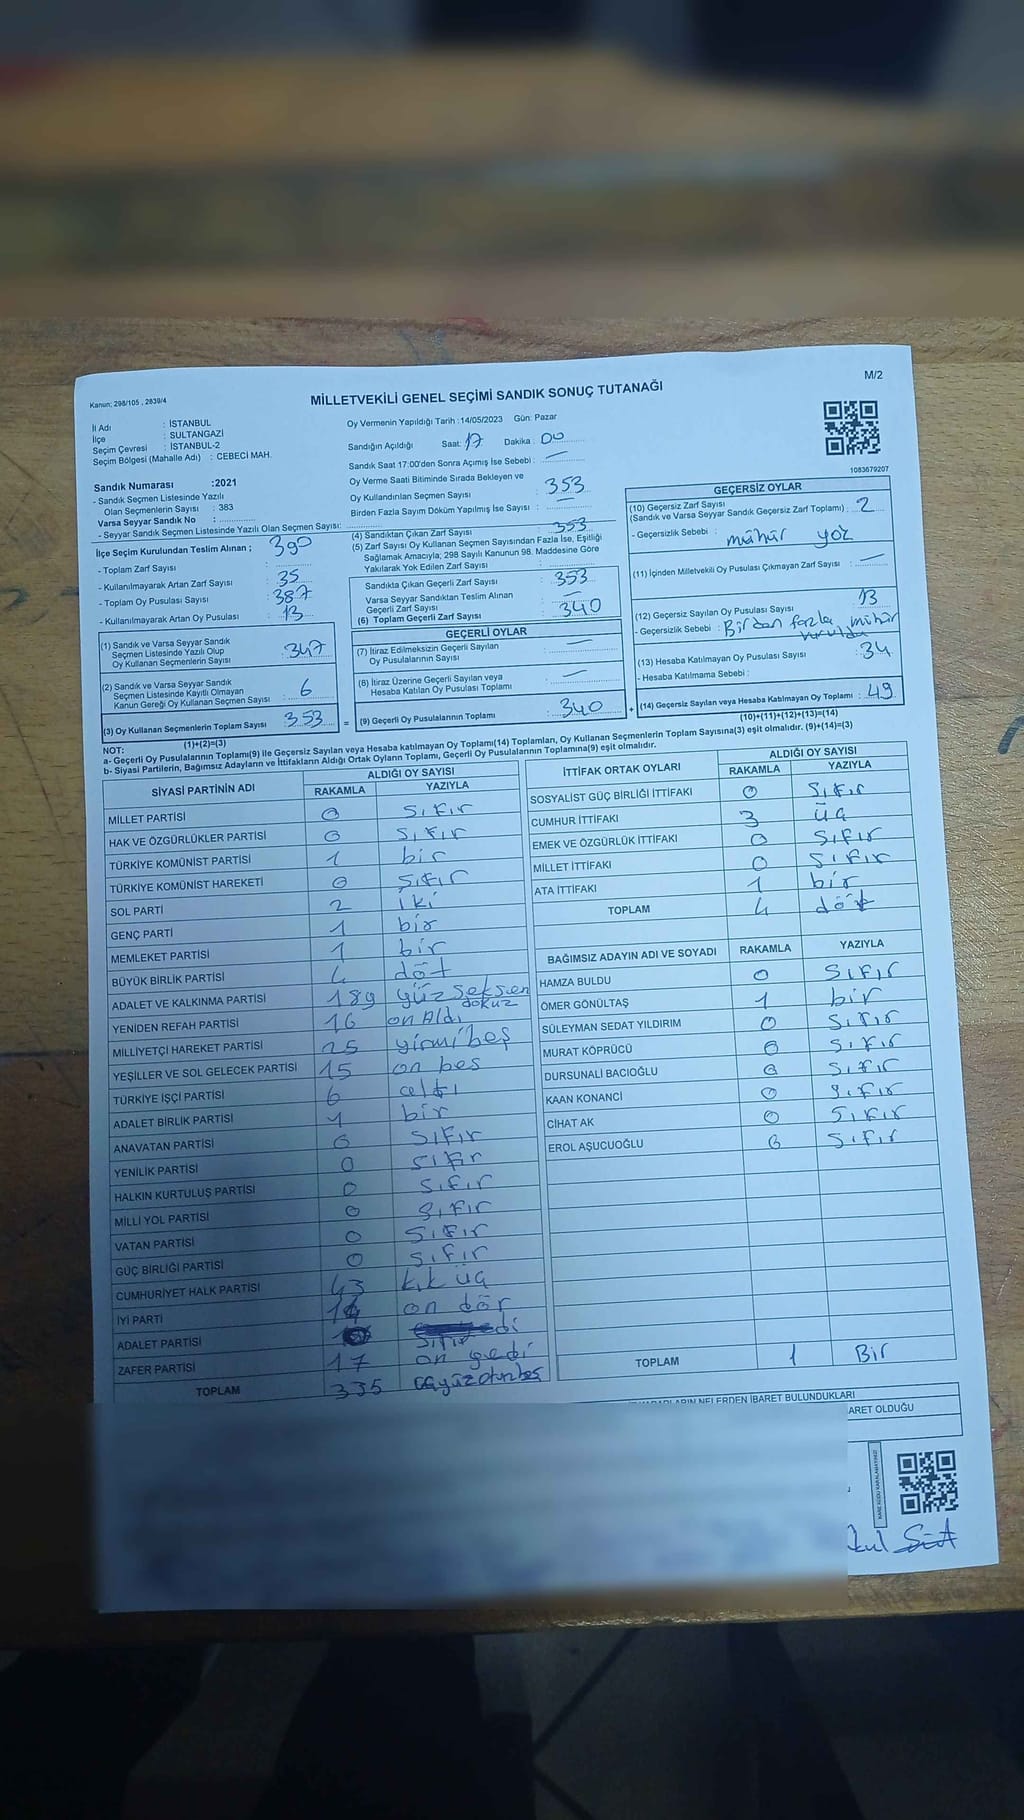 M/2
Kanun; 298/105 , 2839/4
MİLLETVEKİLİ GENEL SEÇİMİ SANDIK SONUÇ TUTANAĞI
İl Adı : İSTANBUL
İlçe : SULTANGAZİ
Seçim Çevresi : İSTANBUL-2
Seçim Bölgesi (Mahalle Adı) : CEBECİ MAH.
Sandık Numarası :2021
- Sandık Seçmen Listesinde Yazılı
Olan Seçmenlerin Sayısı : 383
Varsa Seyyar Sandık No :
- Seyyar Sandık Seçmen Listesinde Yazılı Olan Seçmen Sayısı:
Oy Vermenin Yapıldığı Tarih :14/05/2023 Gün: Pazar
Sandığın Açıldığı Saat: 17 Dakika : 00
Sandık Saat 17:00'den Sonra Açımış İse Sebebi : —
Oy Verme Saati Bitiminde Sırada Bekleyen ve
Oy Kullandırılan Seçmen Sayısı : 353
Birden Fazla Sayım Döküm Yapılmış İse Sayısı : —
1083679207
İlçe Seçim Kurulundan Teslim Alınan ;
- Toplam Zarf Sayısı : 390
- Kullanılmayarak Artan Zarf Sayısı : 35
- Toplam Oy Pusulası Sayısı : 387
- Kullanılmayarak Artan Oy Pusulası : 13
(1) Sandık ve Varsa Seyyar Sandık
Seçmen Listesinde Yazılı Olup
Oy Kullanan Seçmenlerin Sayısı : 347
(2) Sandık ve Varsa Seyyar Sandık
Seçmen Listesinde Kayıtlı Olmayan
Kanun Gereği Oy Kullanan Seçmen Sayısı : 6
(3) Oy Kullanan Seçmenlerin Toplam Sayısı : 353
(1)+(2)=(3)
(4) Sandıktan Çıkan Zarf Sayısı : 353
(5) Zarf Sayısı Oy Kullanan Seçmen Sayısından Fazla İse, Eşitliği
Sağlamak Amacıyla; 298 Sayılı Kanunun 98. Maddesine Göre
Yakılarak Yok Edilen Zarf Sayısı :
Sandıkta Çıkan Geçerli Zarf Sayısı : 353
Varsa Seyyar Sandıktan Teslim Alınan
Geçerli Zarf Sayısı : —
(6) Toplam Geçerli Zarf Sayısı : 340
GEÇERLİ OYLAR
(7) İtiraz Edilmeksizin Geçerli Sayılan
Oy Pusulalarının Sayısı : —
(8) İtiraz Üzerine Geçerli Sayılan veya
Hesaba Katılan Oy Pusulası Toplamı : —
= (9) Geçerli Oy Pusulalarının Toplamı : 340 +
GEÇERSİZ OYLAR
(10) Geçersiz Zarf Sayısı
(Sandık ve Varsa Seyyar Sandık Geçersiz Zarf Toplamı) : 2
- Geçersizlik Sebebi : mühür yoz
(11) İçinden Milletvekili Oy Pusulası Çıkmayan Zarf Sayısı : —
(12) Geçersiz Sayılan Oy Pusulası Sayısı : 13
- Geçersizlik Sebebi : Birden fazla mühür
(13) Hesaba Katılmayan Oy Pusulası Sayısı : 34
- Hesaba Katılmama Sebebi :
(14) Geçersiz Sayılan veya Hesaba Katılmayan Oy Toplamı : 49
(10)+(11)+(12)+(13)=(14)
NOT:
a- Geçerli Oy Pusulalarının Toplamı(9) ile Geçersiz Sayılan veya Hesaba katılmayan Oy Toplamı(14) Toplamları, Oy Kullanan Seçmenlerin Toplam Sayısına(3) eşit olmalıdır. (9)+(14)=(3)
b- Siyasi Partilerin, Bağımsız Adayların ve İttifakların Aldığı Ortak Oyların Toplamı, Geçerli Oy Pusulalarının Toplamına(9) eşit olmalıdır.
SİYASİ PARTİNİN ADI ALDIĞI OY SAYISI
RAKAMLA YAZIYLA
MİLLET PARTİSİ 0 Sıfır
HAK VE ÖZGÜRLÜKLER PARTİSİ 0 Sıfır
TÜRKİYE KOMÜNİST PARTİSİ 1 bir
TÜRKİYE KOMÜNİST HAREKETİ 0 Sıfır
SOL PARTİ 2 iki
GENÇ PARTİ 1 bir
MEMLEKET PARTİSİ 1 bir
BÜYÜK BİRLİK PARTİSİ 4 döt
ADALET VE KALKINMA PARTİSİ 189 yüz Seksen dokuz
YENİDEN REFAH PARTİSİ 16 on Aldı
MİLLİYETÇİ HAREKET PARTİSİ 25 yirmi beş
YEŞİLLER VE SOL GELECEK PARTİSİ 15 on bes
TÜRKİYE İŞÇİ PARTİSİ 6
ADALET BİRLİK PARTİSİ 1 bir
ANAVATAN PARTİSİ 0 Sıfır
YENİLİK PARTİSİ 0 Sıfır
HALKIN KURTULUŞ PARTİSİ 0 Sıfır
MİLLİ YOL PARTİSİ 0 Sıfır
VATAN PARTİSİ 0 Sıfır
GÜÇ BİRLİĞİ PARTİSİ 0 Sıfır
CUMHURİYET HALK PARTİSİ 43 kık üç
İYİ PARTİ 14 on dör
ADALET PARTİSİ
ZAFER PARTİSİ 17 on yedi
TOPLAM 335
İTTİFAK ORTAK OYLARI ALDIĞI OY SAYISI
RAKAMLA YAZIYLA
SOSYALİST GÜÇ BİRLİĞİ İTTİFAKI 0 Sıfır
CUMHUR İTTİFAKI 3 üç
EMEK VE ÖZGÜRLÜK İTTİFAKI 0 Sıfır
MİLLET İTTİFAKI 0 Sıfır
ATA İTTİFAKI 1 bir
TOPLAM 4 döt
BAĞIMSIZ ADAYIN ADI VE SOYADI RAKAMLA YAZIYLA
HAMZA BULDU 0 Sıfır
ÖMER GÖNÜLTAŞ 1 bir
SÜLEYMAN SEDAT YILDIRIM 0 Sıfır
MURAT KÖPRÜCÜ 0 Sıfır
DURSUNALİ BACIOĞLU 0 Sıfır
KAAN KONANCİ 0 Sıfır
CİHAT AK 0 Sıfır
EROL AŞUCUOĞLU 0 Sıfır
TOPLAM 1 Bir
NELERDEN İBARET BULUNDUKLARI
ARET OLDUĞU